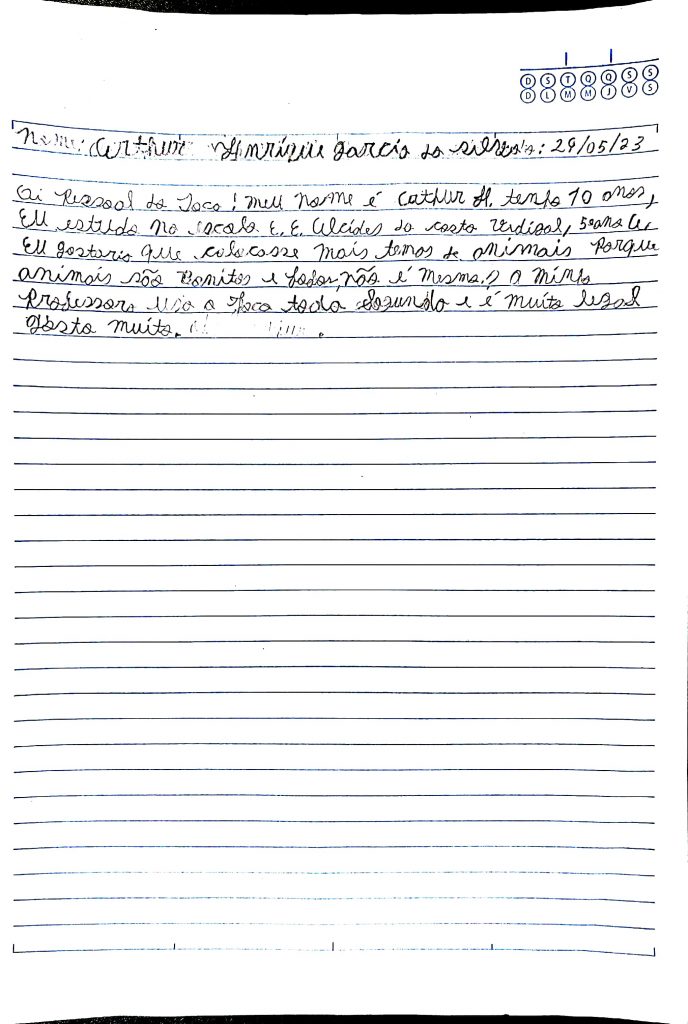 D S T Q Q S S
D L M M J V S
Nome: Arthur Henrique garcia da silva Data: 29/05/23
Oi Pessoal da Joca! meu nome é Arthur H. tenho 10 anos,
EU estudo na escola E. E. Alcides da costa Vidigal, 5º ano A,
EU gostaria que colocasse mais temas de animais Porque
animais são Bonitos e fofos, não é mesmo? a minha
Professora usa a Joca toda segunda e é muito legal
gosto muito.